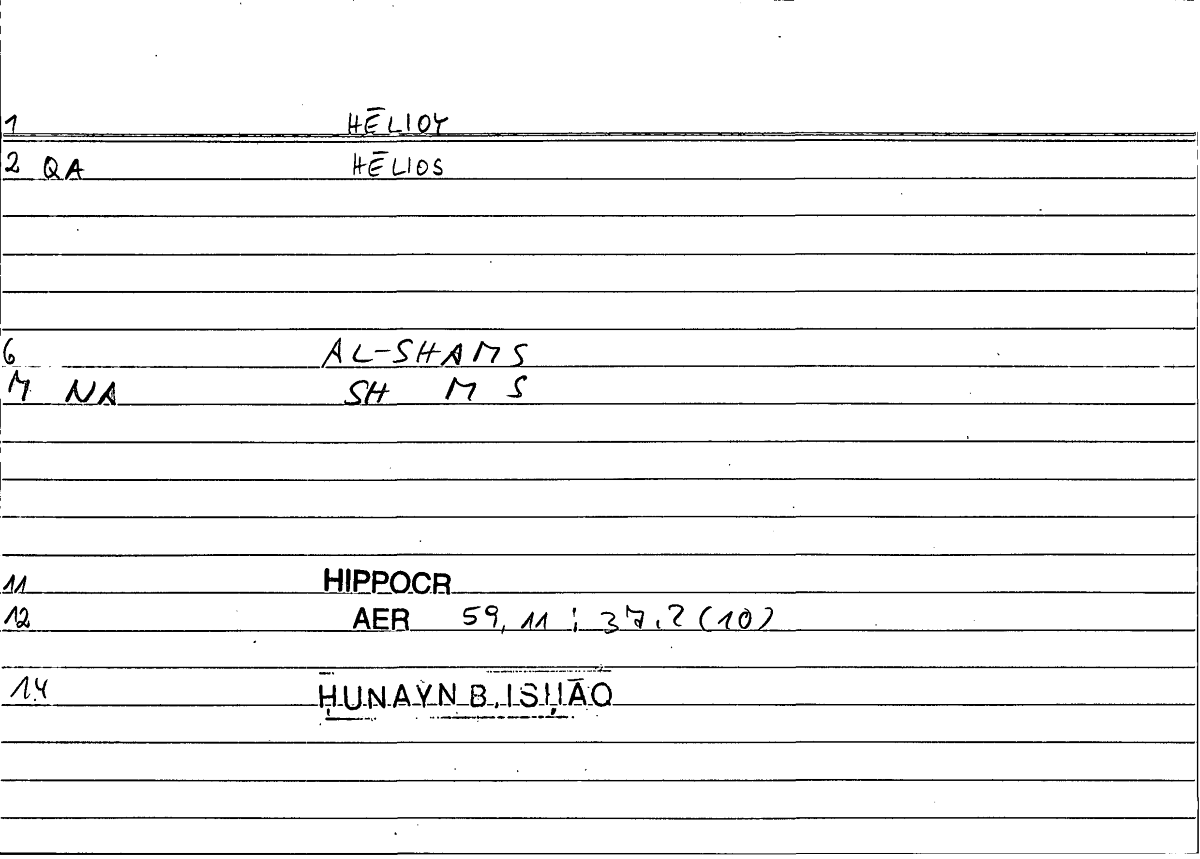 1 HĒLIOY
2 QA HĒLIOS
6 AL-SHAMS
M NA SH M S
11 HIPPOCR
12 AER 59, 11 ; 37.2 (10)
14 ḤUNAYN B. ISḤĀQ